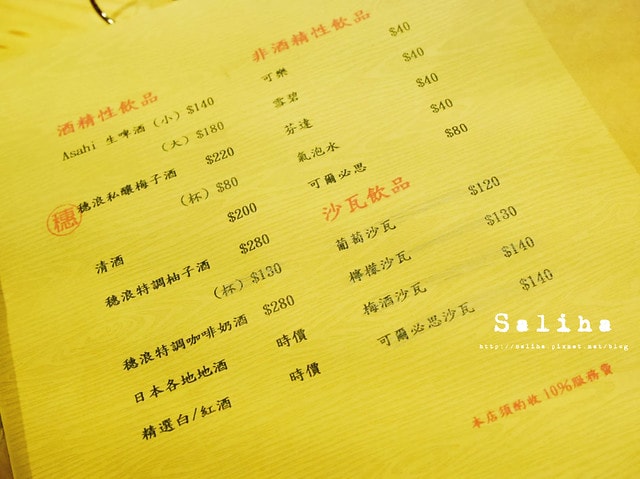 酒精性飲品
Asahi 生啤酒（小）$140
（大）$180
穗 穗浪私釀梅子酒 $220
（杯）$80
清酒 $200
穗浪特調柚子酒 $280
（杯）$130
穗浪特調咖啡奶酒 $280
日本各地地酒 時價
精選白/紅酒 時價
非酒精性飲品
可樂 $40
雪碧 $40
芬達 $40
氣泡水 $40
可爾必思 $80
沙瓦飲品
葡萄沙瓦 $120
檸檬沙瓦 $130
梅酒沙瓦 $140
可爾必思沙瓦 $140
本店須酌收10%服務費
Saliha
http://saliha.pixnet.net/blog